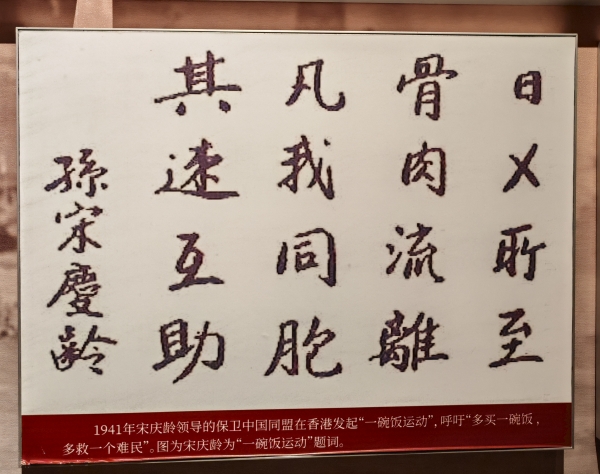 日X所至
骨肉流離
凡我同胞
其速互助
孫宋慶齡
1941年宋庆龄领导的保卫中国同盟在香港发起“一碗饭运动”，呼吁“多买一碗饭，
多救一个难民”。图为宋庆龄为“一碗饭运动”题词。